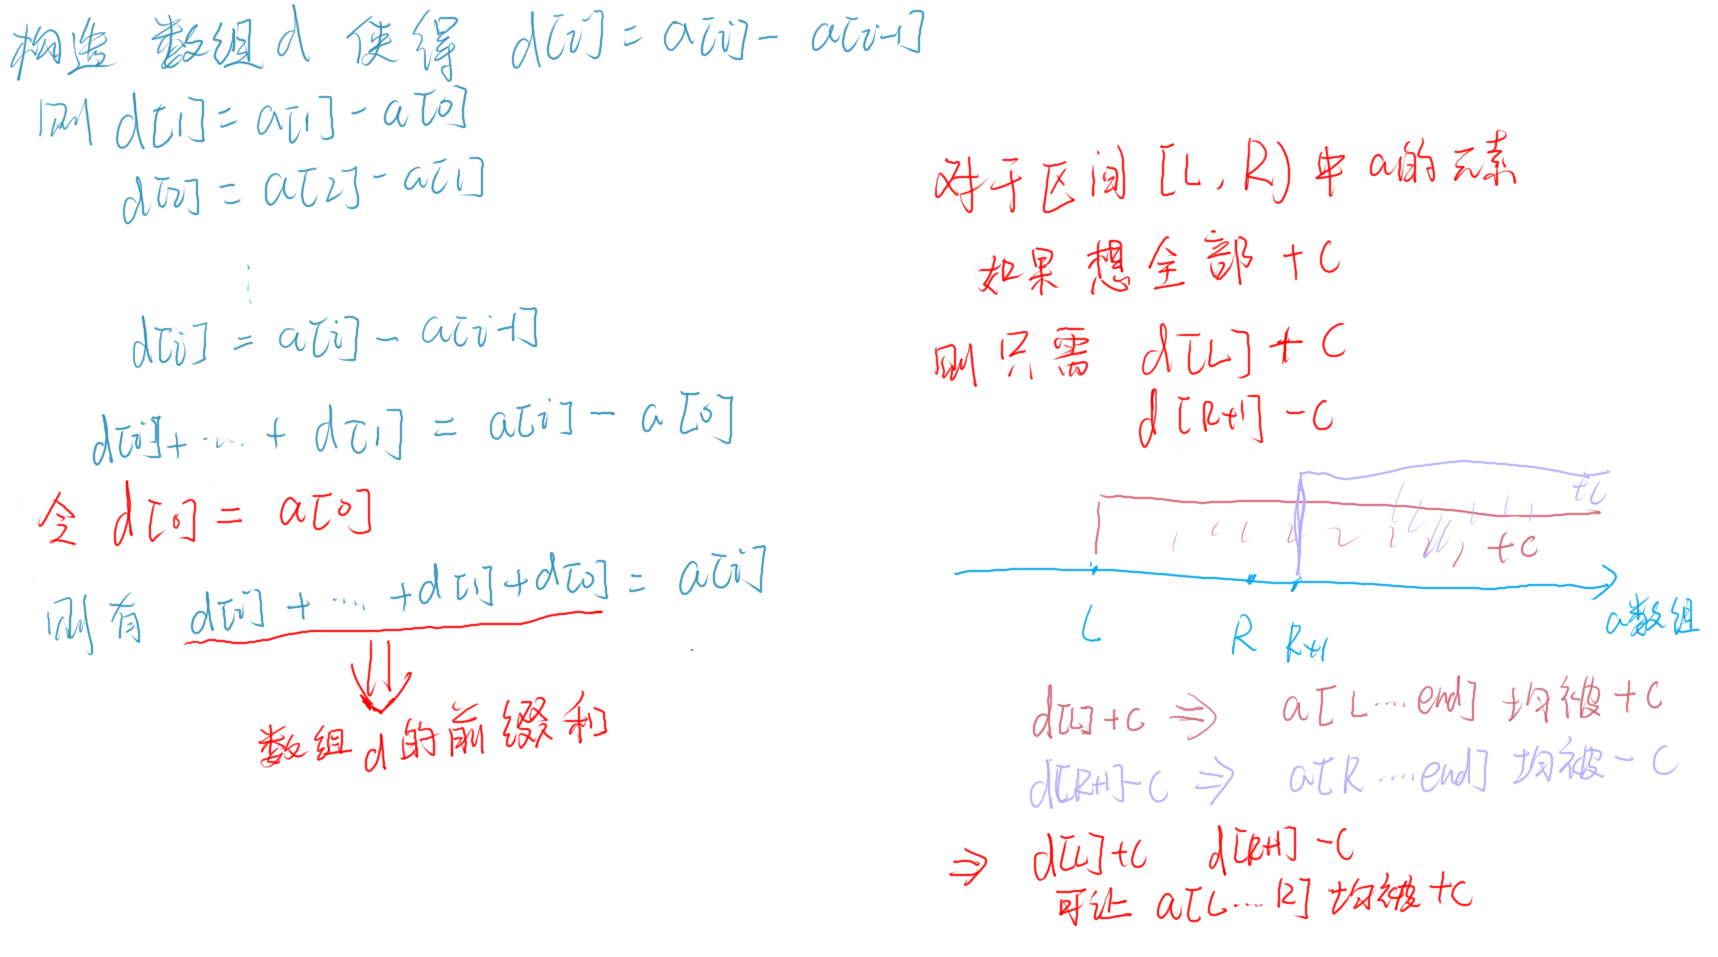 构造 数组d 使得 d[i] = a[i] - a[i-1]
则 d[1] = a[1] - a[0]
d[2] = a[2] - a[1]
⋮
d[i] = a[i] - a[i-1]
d[i] + ..... + d[1] = a[i] - a[0]
令 d[0] = a[0]
则有 d[i] + .... + d[1] + d[0] = a[i]
数组d的前缀和
对于区间 [L, R) 中 a的元素
如果想全部 +C
则只需 d[L] + C
d[R+1] - C
+C
+C
L R R+1
a数组
d[L]+C ⇒ a[L....end] 均被+C
d[R+1]-C ⇒ a[R....end] 均被-C
⇒ d[L]+C d[R+1]-C
可让 a[L....R] 均被+C